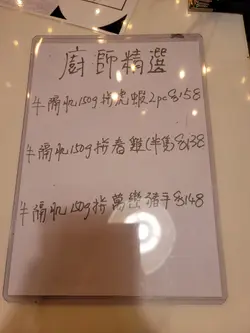 廚師精選
牛隔肌150g拼虎蝦2pc $158
牛隔肌150g拼春雞(半隻 $138
牛隔肌150g拼萬巒豬手 $148